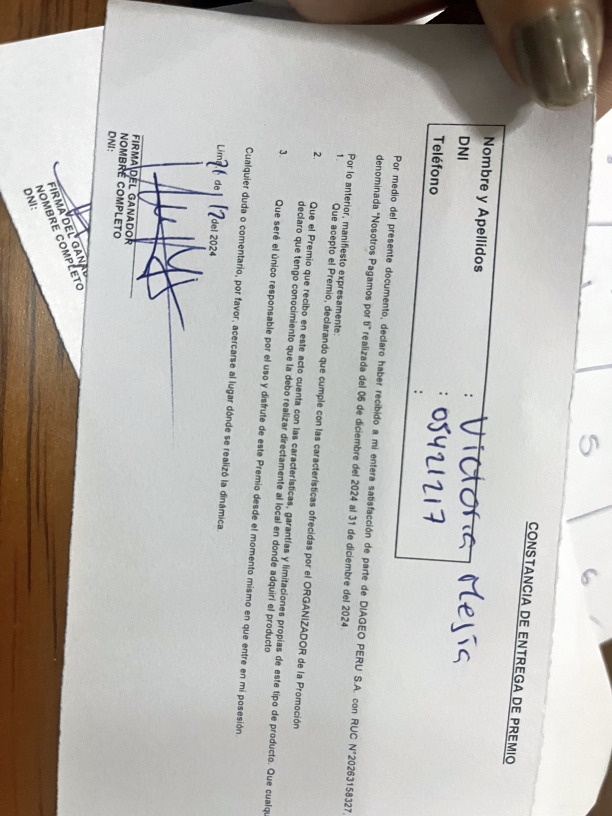 CONSTANCIA DE ENTREGA DE PREMIO
Nombre y Apellidos : Victoria Mejía
DNI : 05421217
Teléfono :
Por medio del presente documento, declaro haber recibido a mi entera satisfacción de parte de DIAGEO PERU S.A. con RUC N°20263158327,
denominada "Nosotros Pagamos por ti" realizada del 06 de diciembre del 2024 al 31 de diciembre del 2024
Por lo anterior, manifiesto expresamente:
1. Que acepto el Premio, declarando que cumple con las características ofrecidas por el ORGANIZADOR de la Promoción
2. Que el Premio que recibo en este acto cuenta con las características, garantías y limitaciones propias de este tipo de producto. Que cualqu
declaro que tengo conocimiento que la debo realizar directamente al local en donde adquirí el producto
3. Que seré el único responsable por el uso y disfrute de este Premio desde el momento mismo en que entre en mi posesión.
Cualquier duda o comentario, por favor, acercarse al lugar dónde se realizó la dinámica.
Lima de 12 del 2024
FIRMA DEL GANADOR
NOMBRE COMPLETO
DNI:
FIRMA DEL GANA
NOMBRE COMPLETO
DNI:
5
6